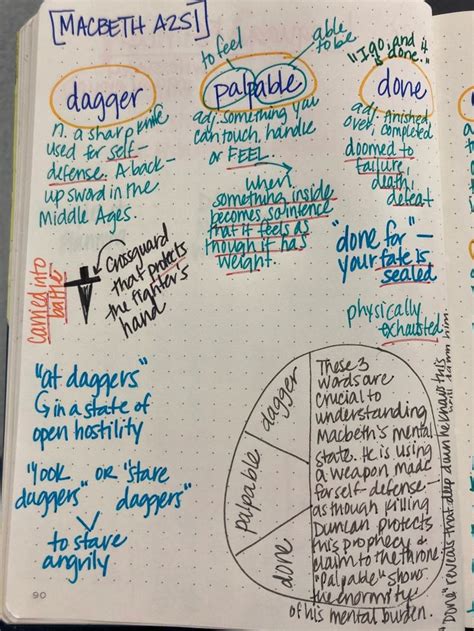 [MACBETH A2S1]
dagger
n. a sharp knife
used for self-
defense. A back-
up sword in the
Middle Ages.
carried into
battle
Crossguard
that protects
the fighter's
hand
"at daggers"
in a state of
open hostility
"look" or "stare
daggers" daggers"
to stare
angrily
to feel
able
to be
palpable
adj. something you
can touch, handle
or FEEL
when
something inside
becomes so intence
that it feels as
though it has
weight.
"I go, and it
is done."
done
adj. finished
over, completed
doomed to
failure,
death,
defeat
"done for" -
your fate is
sealed
physically
exhausted
dagger
palpable
done
These 3
words are
crucial to
understanding
Macbeth's mental
state. He is using
a weapon made
for self-defense -
as though killing
Duncan protects
his prophecy &
claim to the throne.
"Palpable" shows
the enormity
of his mental burden.
"Done" reveals that deep down he knows this
will damn him.
90